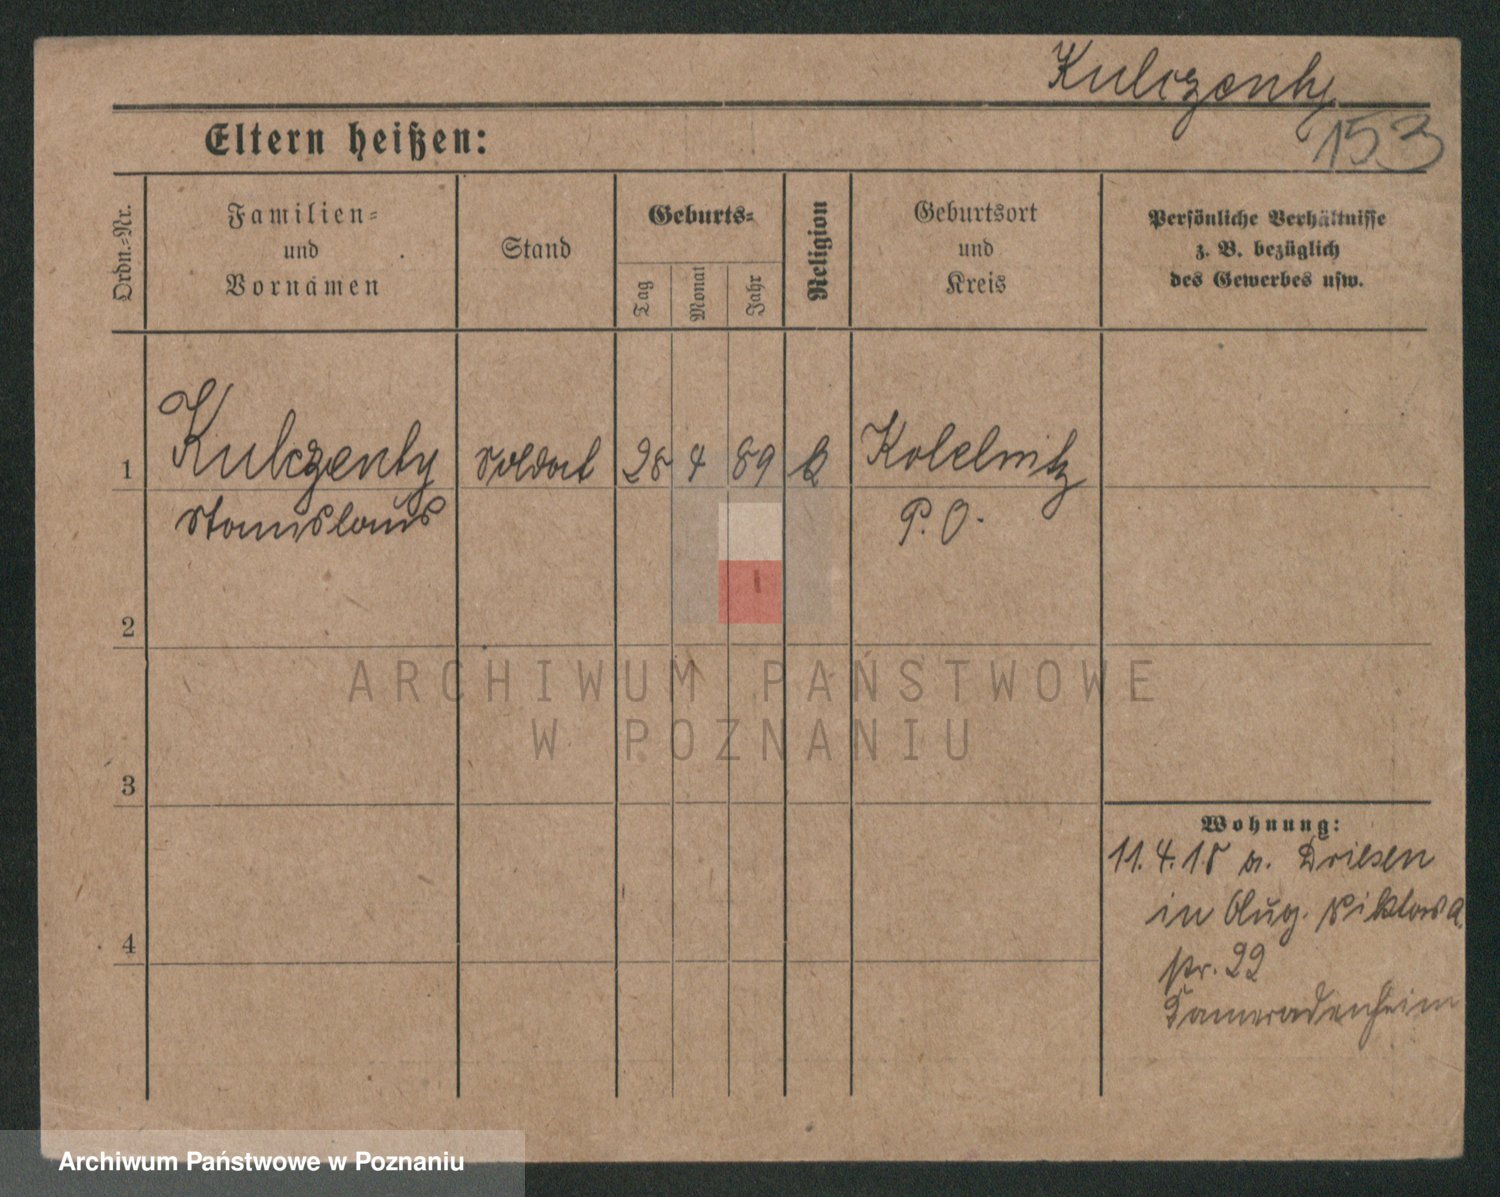 Kulczenty
153
Eltern heißen:
Ordn.-Nr.
Familien-
und
Vornamen
Stand
Geburts-
Tag
Monat
Jahr
Religion
Geburtsort
und
Kreis
Persönliche Verhältnisse
z. B. bezüglich
des Gewerbes usw.
1
Kulczenty
Soldat
28
4
89
k
Kolelnitz
Stanislaus
P. O.
2
3
4
ARCHIWUM PAŃSTWOWE
W POZNANIU
Wohnung:
11.4.18 a. Driesen
in Aug. Viktoria
str. 22
Kameradenheim
Archiwum Państwowe w Poznaniu